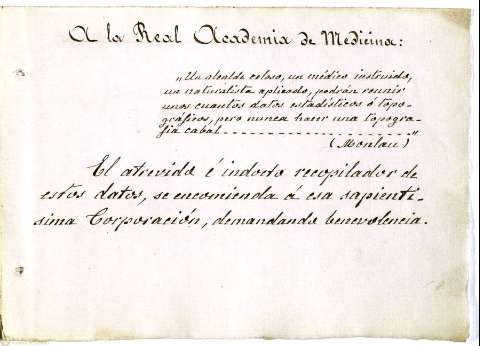 A la Real Academia de Medicina:
„Un alcalde celoso, un médico instruido,
un naturalista aplicado, podrán reunir
unos cuantos datos estadísticos ó topo-
gráficos, pero nunca hacer una topogra-
fía cabal. . . . . . . . . . . . . . . . . . . . . . . . "
(Monlau)
El atrevido é indocto recopilador de
estos datos, se encomienda á esa sapientí-
sima Corporación, demandando benevolencia.